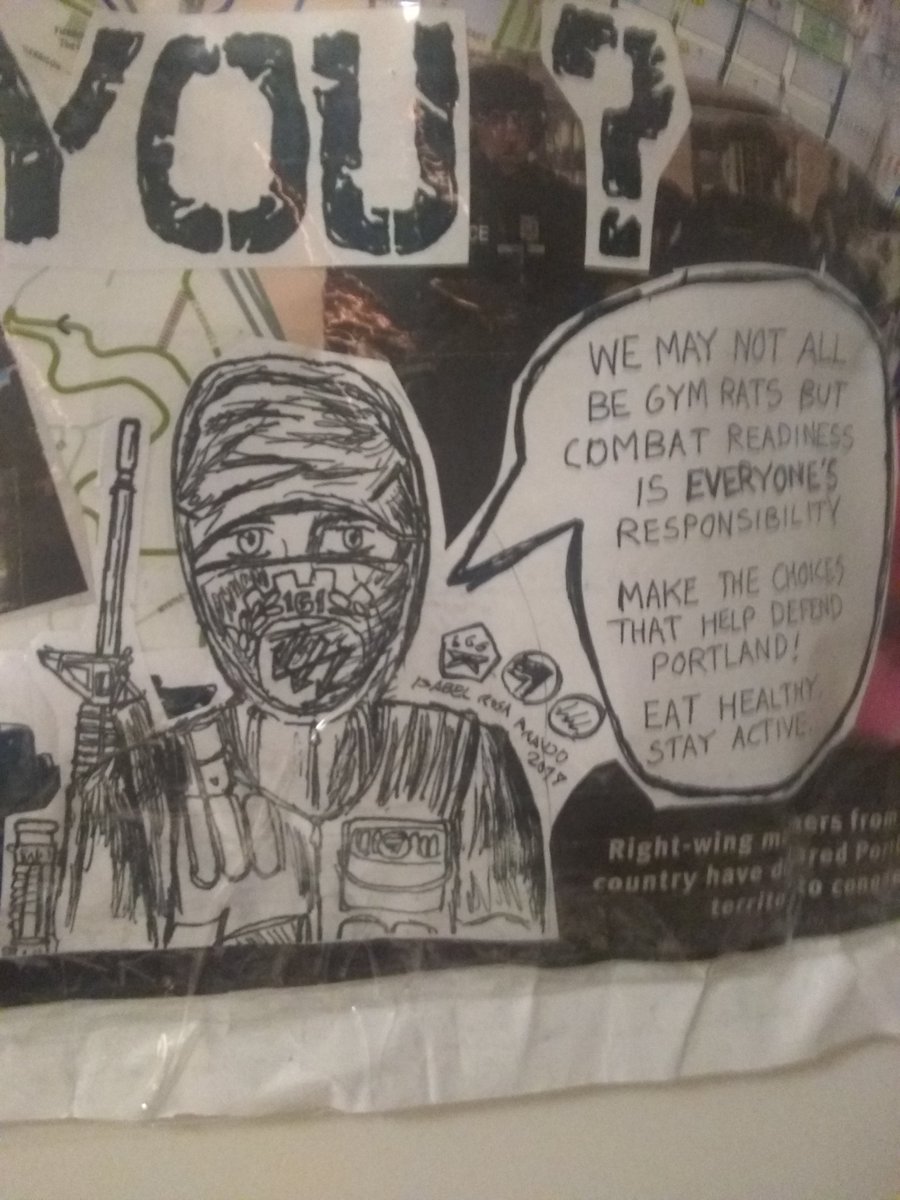 YOU?
CE
WE MAY NOT ALL
BE GYM RATS BUT
COMBAT READINESS
IS EVERYONE'S
RESPONSIBILITY
MAKE THE CHOICES
THAT HELP DEFEND
PORTLAND!
EAT HEALTHY
STAY ACTIVE.
161
ISABEL ROSA
2018
Right-wing
country have